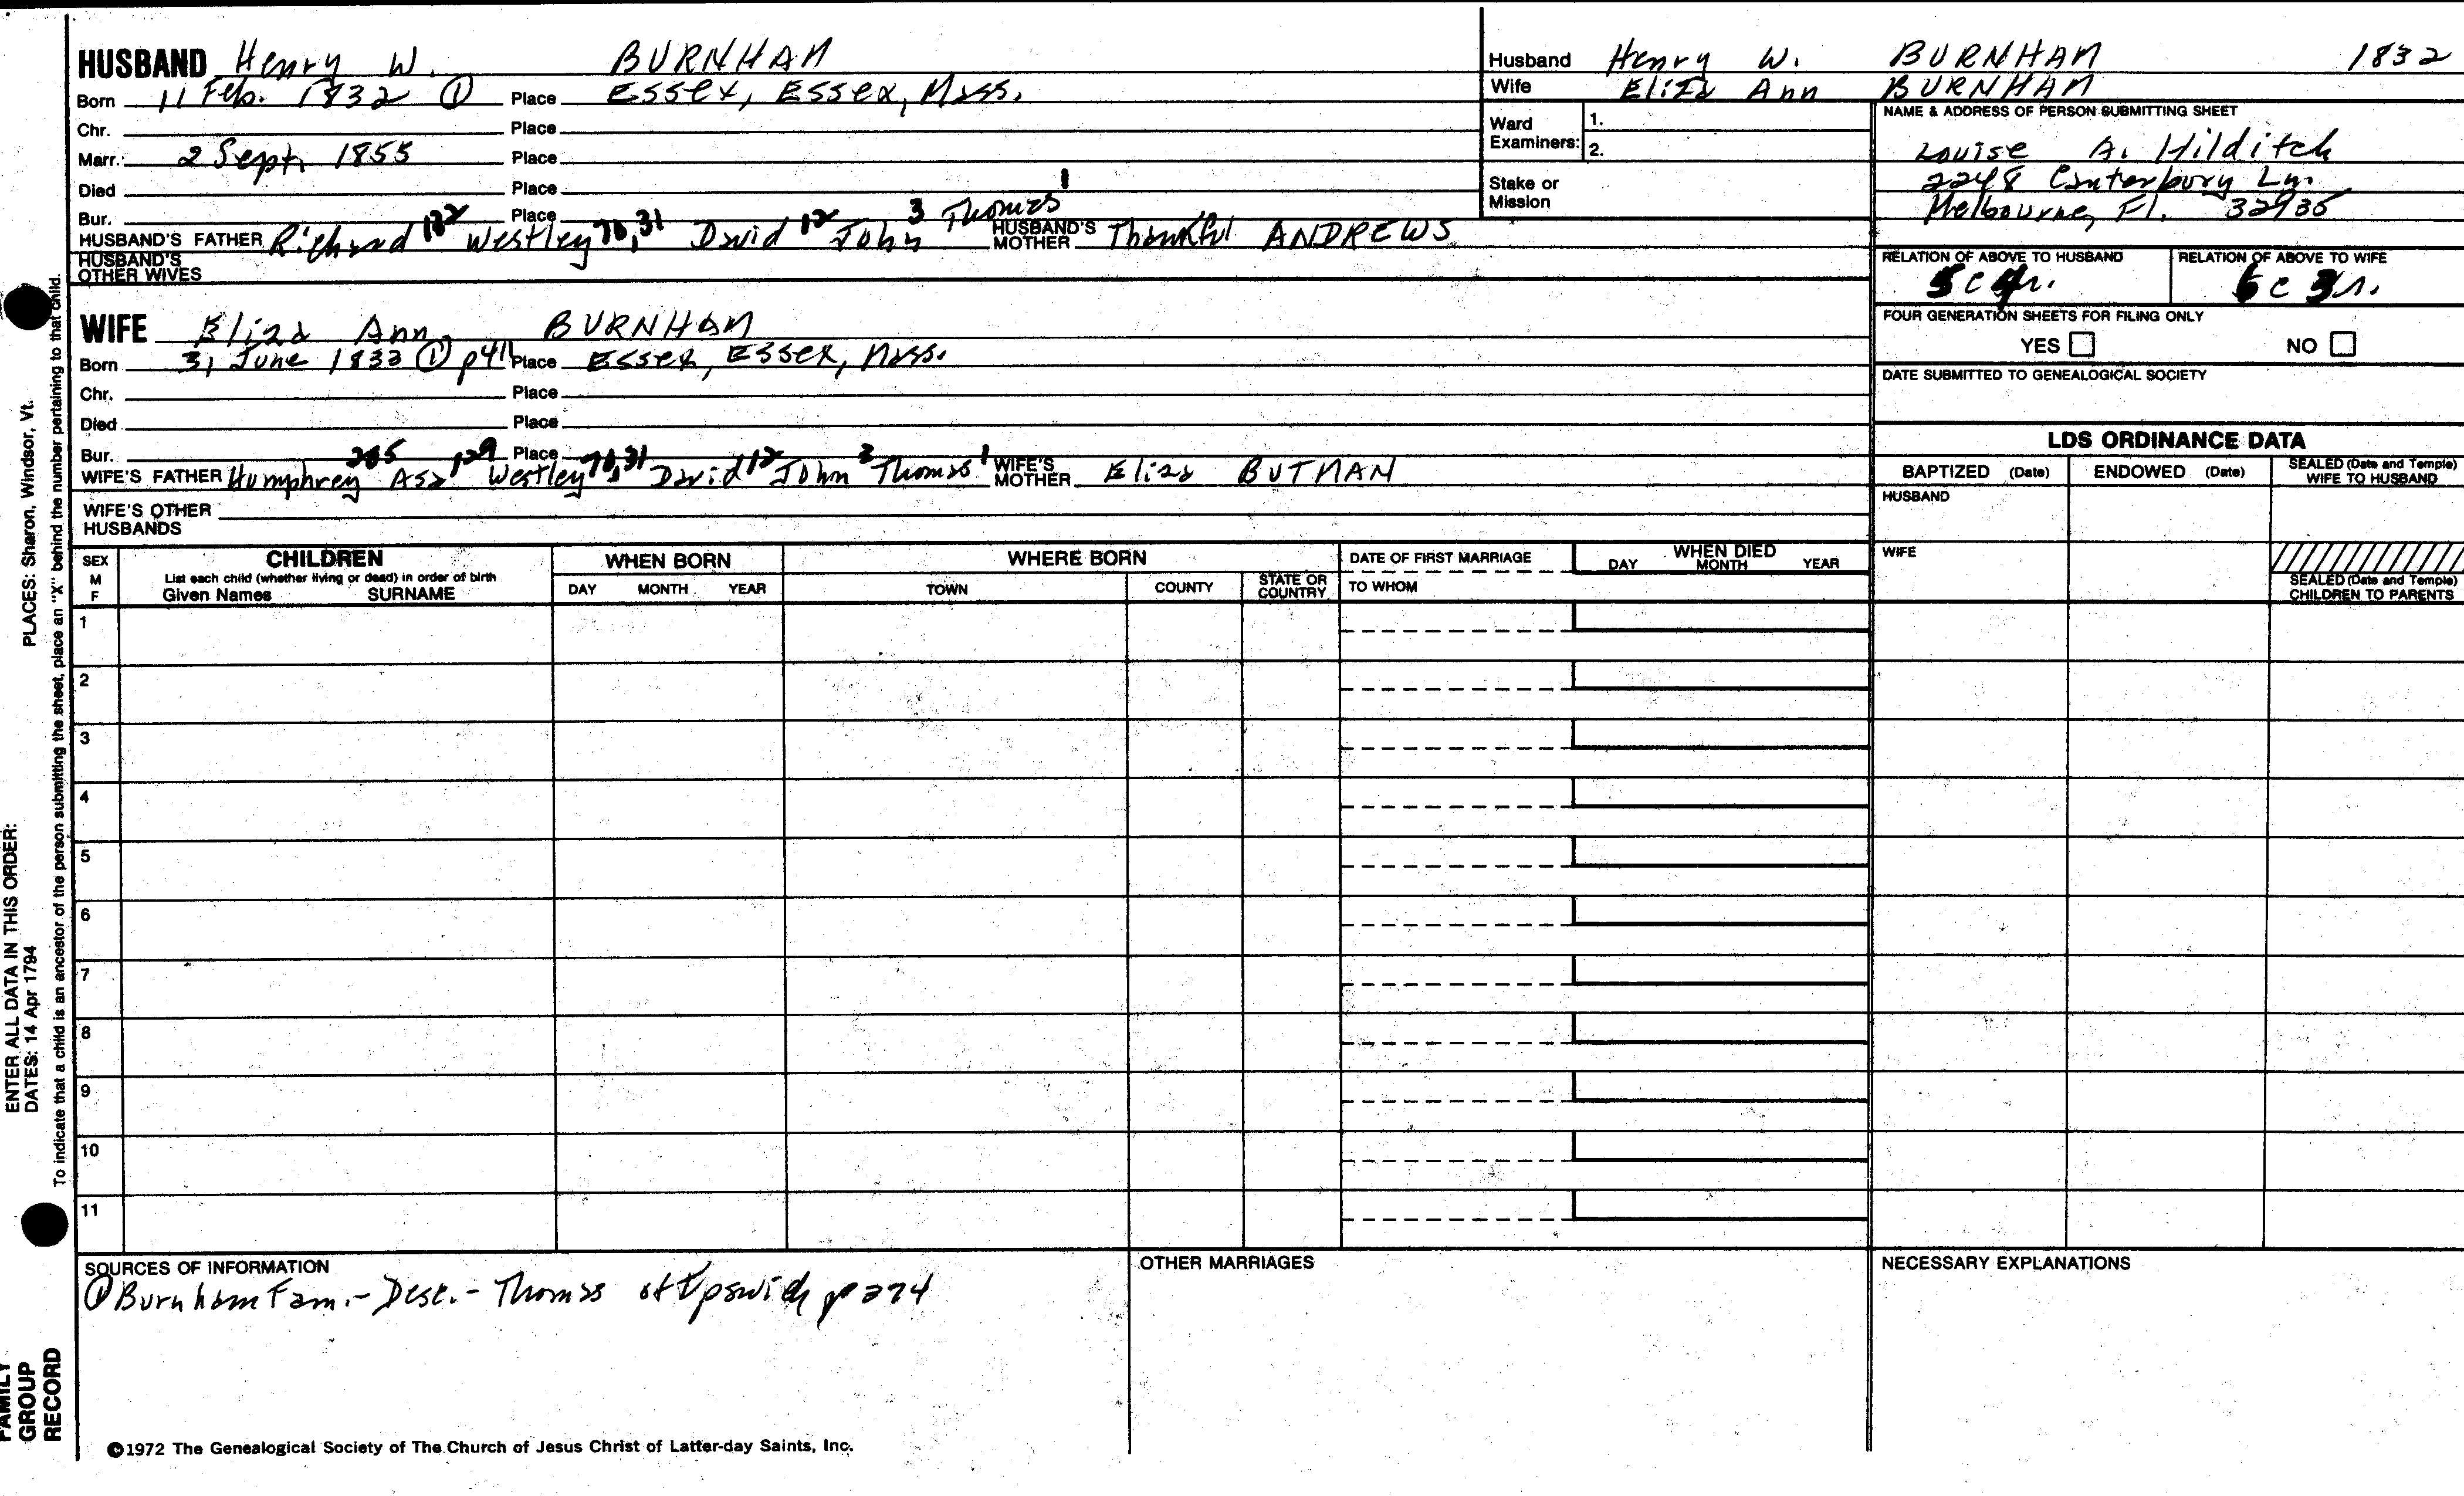 HUSBAND Henry W. BURNHAM
Born 11 Feb. 1832 ① Place Essex, Essex, Mass.
Chr. Place
Marr. 2 Sept. 1855 Place
Died Place
Bur. Place
HUSBAND'S FATHER Richard 132 Westley 70,31 David 12 John 3 Thomas 1 HUSBAND'S MOTHER Thankful ANDREWS
HUSBAND'S OTHER WIVES
Husband Henry W. BURNHAM 1832
Wife Eliza Ann BURNHAM
Ward Examiners: 1.
2.
Stake or Mission
NAME & ADDRESS OF PERSON SUBMITTING SHEET
Louise A. Hilditch
2248 Canterbury Ln.
Melbourne, Fl. 32935
RELATION OF ABOVE TO HUSBAND
5 c 4r.
RELATION OF ABOVE TO WIFE
6 c 3r.
FOUR GENERATION SHEETS FOR FILING ONLY
YES NO
DATE SUBMITTED TO GENEALOGICAL SOCIETY
WIFE Eliza Ann BURNHAM
Born 31 June 1833 ① p411 Place Essex, Essex, Mass.
Chr. Place
Died Place
Bur. Place
WIFE'S FATHER Humphrey 265 Asa 129 Westley 70,31 David 12 John 3 Thomas 1 WIFE'S MOTHER Eliza BUTMAN
WIFE'S OTHER HUSBANDS
LDS ORDINANCE DATA
BAPTIZED (Date) ENDOWED (Date) SEALED (Date and Temple) WIFE TO HUSBAND
HUSBAND
WIFE
SEALED (Date and Temple) CHILDREN TO PARENTS
SEX M F
CHILDREN
List each child (whether living or dead) in order of birth
Given Names SURNAME
WHEN BORN
DAY MONTH YEAR
WHERE BORN
TOWN COUNTY STATE OR COUNTRY
DATE OF FIRST MARRIAGE
TO WHOM
WHEN DIED
DAY MONTH YEAR
1
2
3
4
5
6
7
8
9
10
11
SOURCES OF INFORMATION
① Burnham Fam.- Desc.- Thomas of Ipswich p 274
OTHER MARRIAGES
NECESSARY EXPLANATIONS
©1972 The Genealogical Society of The Church of Jesus Christ of Latter-day Saints, Inc.
ENTER ALL DATA IN THIS ORDER:
DATES: 14 Apr 1794 PLACES: Sharon, Windsor, Vt.
To indicate that a child is an ancestor of the person submitting the sheet, place an "X" behind the number pertaining to that child.
FAMILY
GROUP
RECORD